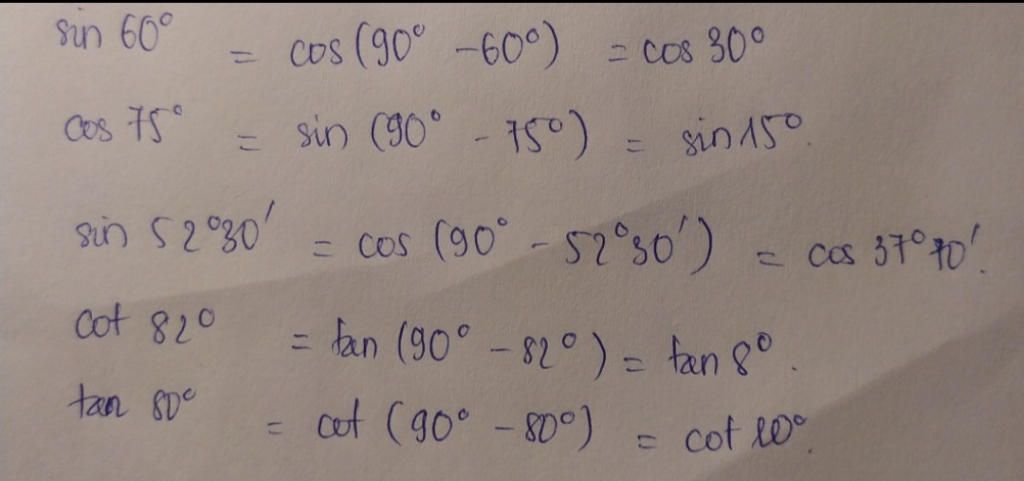 sin 60° = cos (90° - 60°) = cos 30°
cos 75° = sin (90° - 75°) = sin 15°.
sin 52°30' = cos (90° - 52°30') = cos 37°70'.
cot 82° = tan (90° - 82°) = tan 8°.
tan 80° = cot (90° - 80°) = cot 10°.